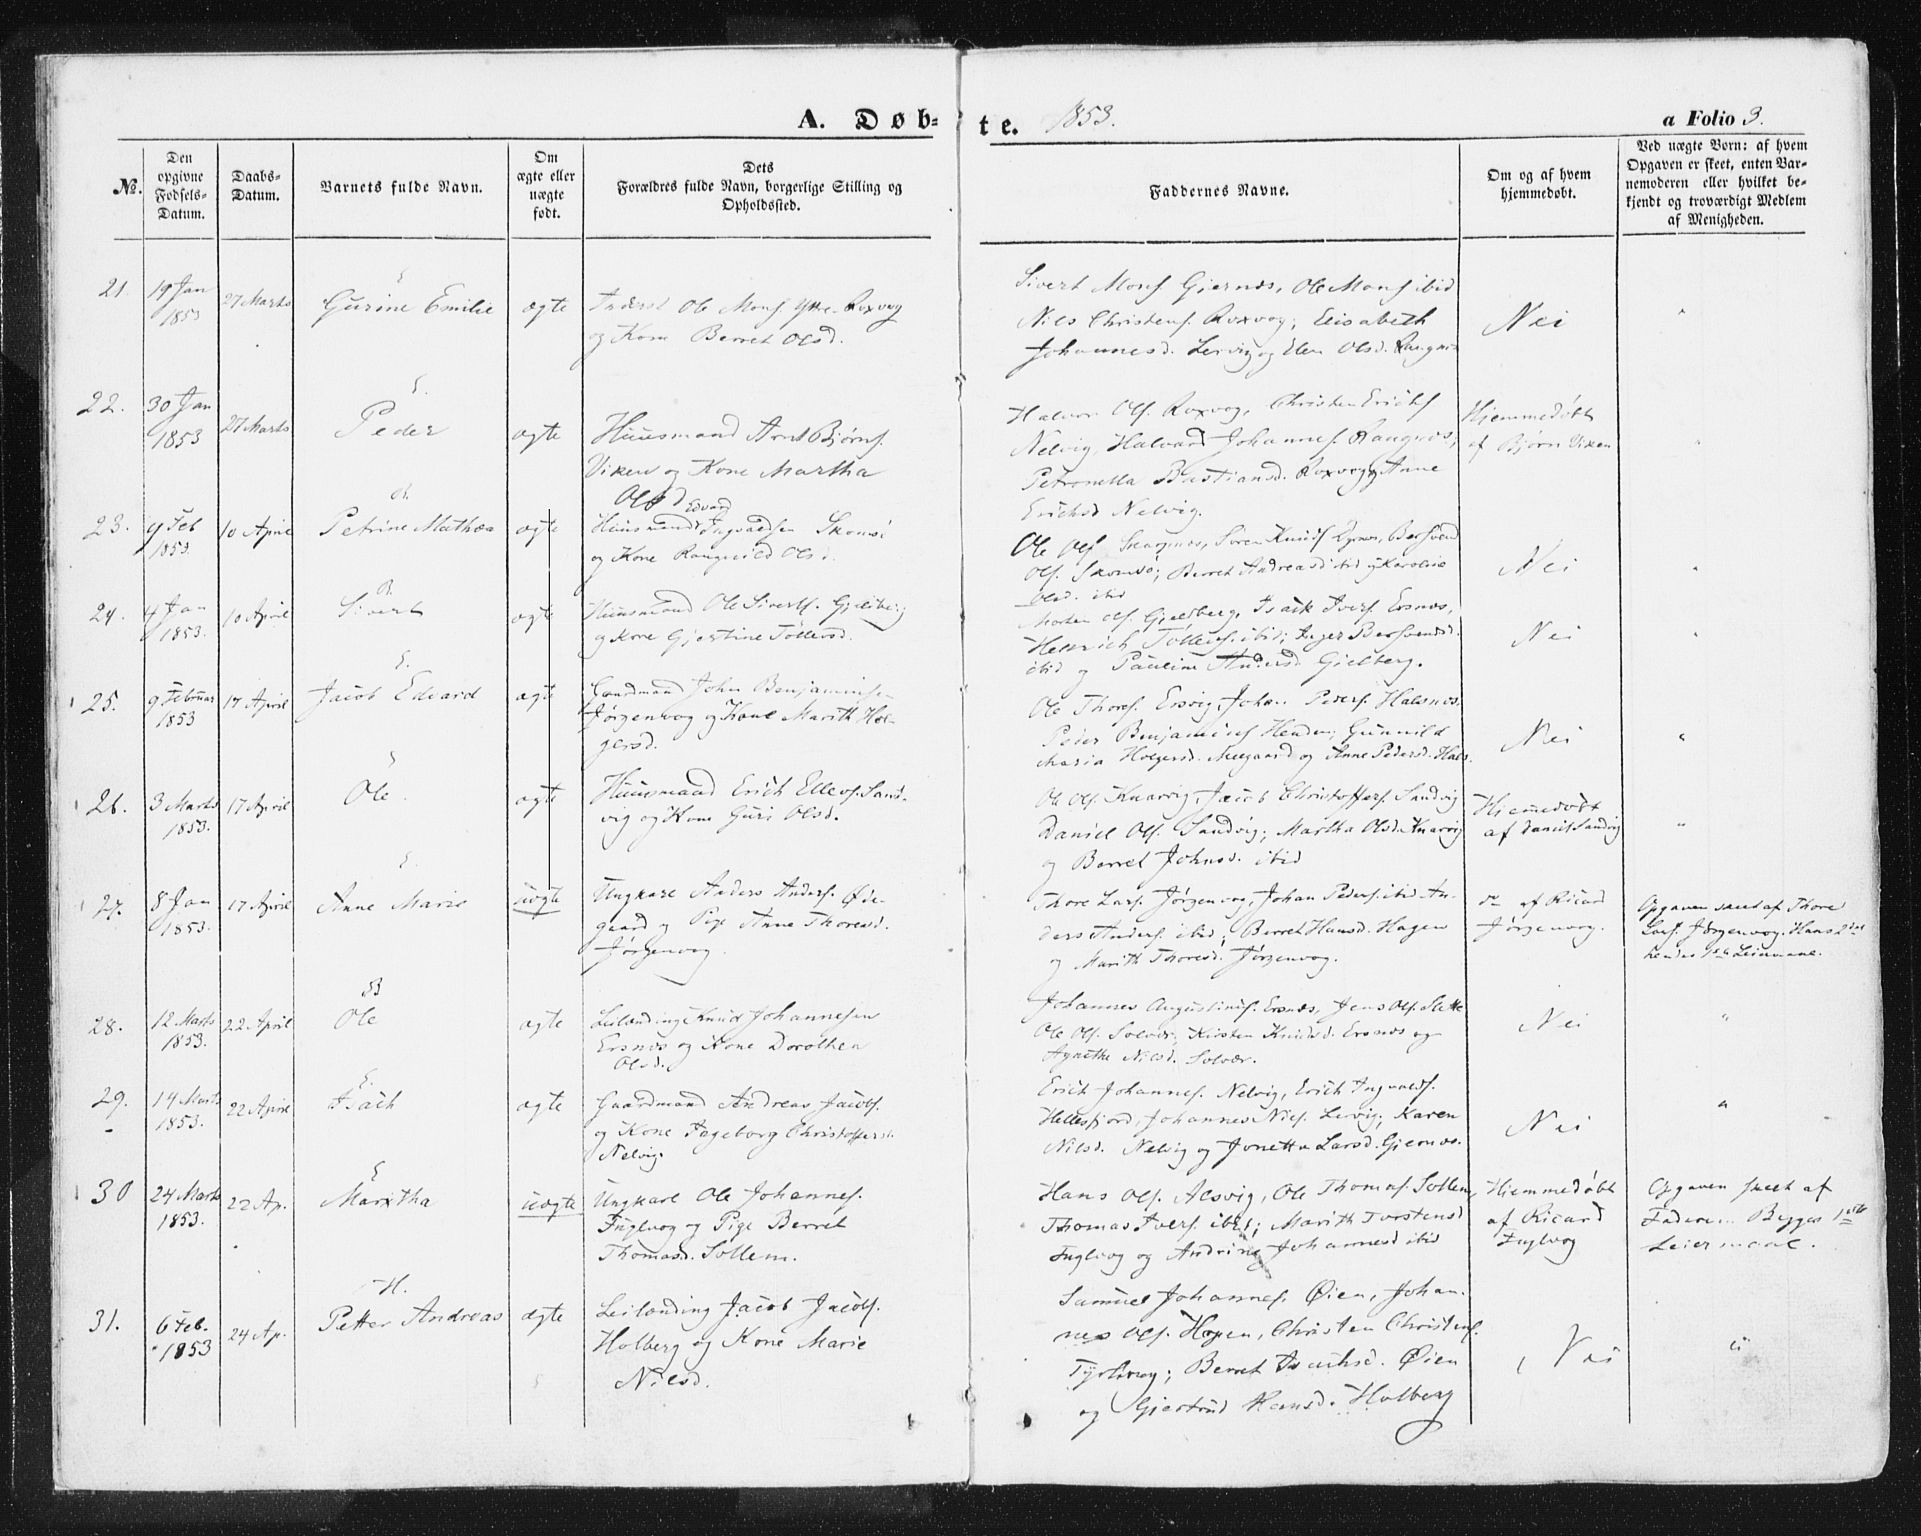 A. Døb-te. 1853.
a Folio 3.
No.
Den opgivne Fødsels-Datum.
Daabs-Datum.
Barnets fulde Navn.
Om ægte eller uægte født.
Dets
Forældres fulde Navn, borgerlige Stilling og
Opholdssted.
Faddernes Navne.
Om og af hvem
hjemmedøbt.
Ved uægte Børn: af hvem
Opgaven er skeet, enten Bar-
nemoderen eller hvilket be-
kjendt og troværdigt Medlem
af Menigheden.
21. 19 Jan 1853 27 Marts Gurine Emilie ægte
Inderst Ole Monsf. Ytre Roxvog
og Kone Berret Olsd.
Sivert Monsf Gjernæs, Ole Monsf ibid
Nils Christensf. Roxvog; Elisabeth
Johannesd. Lervig og Elen Olsd. Rangnæs
Nei "
22. 30 Jan 1853 27 Marts Peder ægte
Huusmand Arnt Bjørnsf.
Viken og Kone Martha
Olsd
Halvor Olsf. Roxvog, Christen Erichsf
Nelvig, Halvard Johannesf. Rangnæs,
Petronella Bastiansd. Roxvog og Anne
Erichsd Nelvig.
Hjemmedøbt
af Bjørn Viken "
23. 9 Feb 1853. 10 April Petrine Mathea ægte
Edvard
Huusmand Ingvaldsen Skomsø
og Kone Rangnild Olsd.
Ole Olsf Skagnæs, Soren Knudsf Lyngnæs, Bersvend
Olsf. Skomsø; Berret Andreasd ibid og Karoline
Olsd. ibid
Nei "
24. 4 Jan 1853. 10 April Sivert ægte
Huusmand Ole Sivertsf. Gjelberg
og Kone Gjertine Tollersd.
Morten Olsf. Gjelberg, Isack Iversf. Ersnæs,
Henrich Tollersf. ibid; Inger Bersvendsd.
ibid og Pauline Andersd Gjelberg.
Nei "
25. 9 Februar 1853 17 April Jacob Edvard ægte
Gaardmand John Benjaminsen
Jørgenvog og Kone Marith Hol-
gersd.
Ole Thoresf. Ersvig, Johan Pedersf. Halsnæs,
Peder Benjaminsf Henden; Gunnild
Maria Holgersd. Neegaard og Anne Pedersd. Hals.
Nei "
26. 3 Marts 1853. 17 April Ole ægte
Huusmand Erich Ellevsf. Sand-
vig og Kone Guri Olsd.
Ole Olsf. Knarvig, Jacob Christoffersf. Sandvig
Daniel Olsf. Sandvig; Martha Olsd. Knarvig
og Berret Johnsd. ibid
Hjemmedøbt
af Daniel Sandvig "
27. 8 Jan 1853. 17 April Anne Marie uægte
Ungkarl Anders Andersf. Øde-
gaard og Pige Anne Thoresd.
Jørgenvog
Thore Larsf. Jørgenvog, Johan Pedersf. ibid An-
ders Andersf. ibid; Berret Hansd. Hagen
og Marith Thoresd. Jørgenvog.
do af Ricard
Jørgenvog.
Opgaven skeet af Thore
Larsf. Jørgenvog. Hans 2det
hendes 1ste Leiermaal.
28. 12 Marts 1853. 22 April Ole ægte
Leilending Knud Johannesen
Ersnæs og Kone Dorothea
Olsd.
Johannes Augustinusf. Ersnæs, Jens Olsf. Slette
Ole Olsf. Solvær; Kirsten Knudsd. Ersnæs og
Agnethe Nilsd. Solvær.
Nei "
29. 14 Marts 1853. 22 April Isach ægte
Gaardmand Andreas Jacobsf.
og Kone Ingeborg Christoffersd.
Nelvig.
Erich Johannesf. Nelvig, Erich Ingvaldsf.
Hellesfjord, Johannes Nilsf. Lervig; Karen
Nilsd. Nelvig og Jonetta Larsd. Gjernæs.
Nei "
30 24 Marts 1853. 22 Ap. Martha uægte
Ungkarl Ole Johannesf.
Fuglvog og Pige Berret
Thomasd. Sollem.
Hans Olsf. Alsvig, Ole Thomasf. Sollem,
Thomas Iversf. ibid; Marith Torstensd
Fuglvog og Andrine Johannesd ibid
Hjemmedøbt
af Ricard
Fuglvog
Opgaven skeet af
Faderen. Begges 1ste
Leiermaal.
31. 6 Feb. 1853 24 Ap. Petter Andreas ægte
Leilending Jacob Jacobsf.
Holberg og Kone Marie
Nilsd.
Samuel Johannesf. Øien, Johan-
nes Olsf. Hopen, Christen Christensf.
Berret Isachsd. Øien
og Gjertrud Hansd. Holberg
Nei "